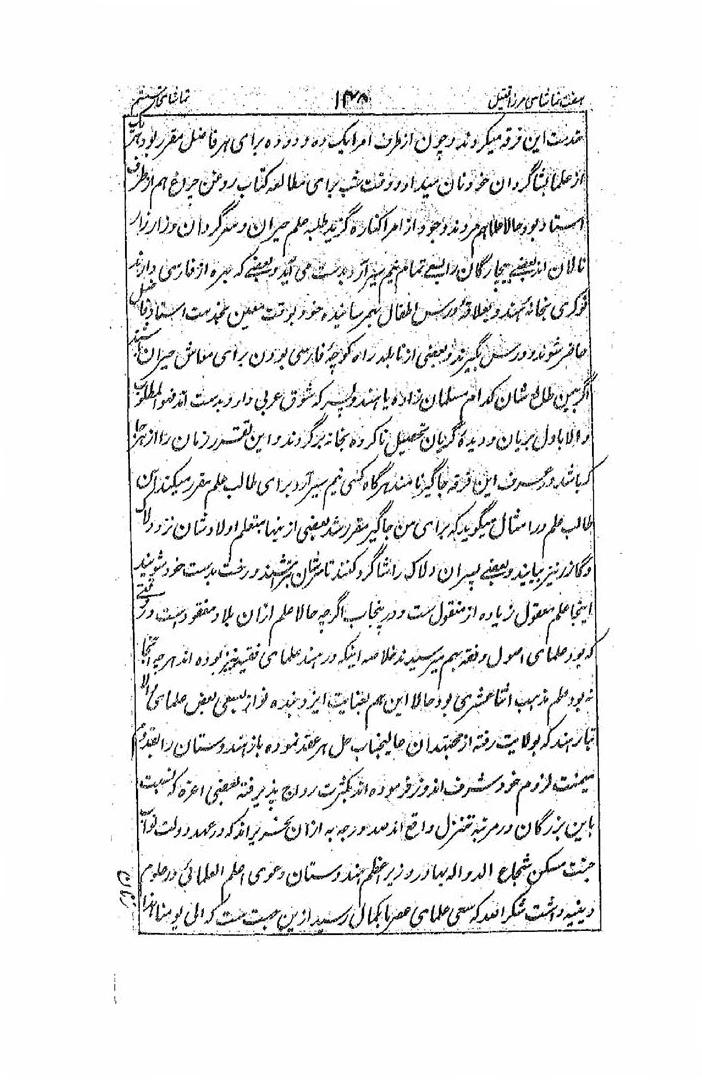 هفت تماشای مرزا قتیل ۱۴۸ تماشای هشتم
خدمت این فرقه میکردند و چون از طرف امرا یک ده و دو ده برای هر فاضل مقرر بود هر یک
از علما بشاگردان خود نان میداد و وقت شب برای مطالعه کتاب روغن چراغ هم از طرف
استاد بود حالا علما هم مردند وجود از امرا کناره گزید طلبه علم حیران و سرگردان و زار زار
نالان اند بعضی بیچارگان را بسعی تمام نیم سیر آرد بدست می آید و بعضی که بهره از فارسی دارند
نوکری بخانه هندو بعلاقه درس اطفال بهم رسانیده خود بوقت معین بخدمت استاد فاضل
حاضر شوند و درس بگیرند و بعضی از نابلد راه کوچه فارسی بودن برای معاش حیران باشند
اگر بیمن طالع شان کدام مسلمان زاده یا هندو پسر که شوق عربی دارد بدست افتد فهو المطلوب
و الا با دل بریان و دیده گریان تحصیل ناکرده بخانه برگردند و این تقرر زمان را از هر جا
که باشد در عرف این فرقه جاگیر نامند هرگاه کسی نیم سیر آرد برای طالب علم مقرر میکند آن
طالب علم در امثال میگوید که برای من جاگیر مقرر شد بعضی از ینها بتعلم اولاد شان نزد دلاک
و گاذر نیز بیایند و بعضی پسران دلاک را شاگرد کنند تا سرشان بتراشند و رخت بدست خود شویند
اینجا علم معقول زیاده از منقول ست و در پنجاب اگرچه حالا علم ازان بلاد مفقود ست در وقتی
که بود علمای اصول و فقه بهم میرسیدند خلاصه اینکه در هند علمای فقیه نیز بوده اند هرچه اینجا
نه بود علم مذهب اثنا عشری بود حالا این هم بعنایت ایزد بنده نواز بسعی بعض علمای والا
تبار هند که بولایت رفته از مجتهدان عالیجناب حل هر عقد نموده باز هندوستان را بقدوم
میمنت لزوم خود شرف اندوز فرموده اند بکثرت رواج پذیرفته بعضی اعزه که نسبت
باین بزرگان در مرتبه تنزل واقع اند صد درجه به از آن کسیرند که در عهد دولت نواب
جنت مسکن شجاع الدوله بهادر وزیر اعظم هندوستان دعوی اعلم العلمائی در علوم
دینیه داشت شکر الله که سعی علمای عصر بکمال رسید ازین جهت ست که الی یومنا هذا